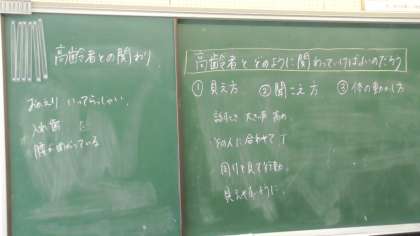 高齢者との関わり
おかえり いってらっしゃい
入れ歯
腰が曲がっている
高齢者とどのように関わっていけばよいのだろう
① 見え方 ② 聞こえ方 ③ 体の動かし方
話すとき 大きい声 高め
その人に合わせて
周りを見て行動
見えやすいように